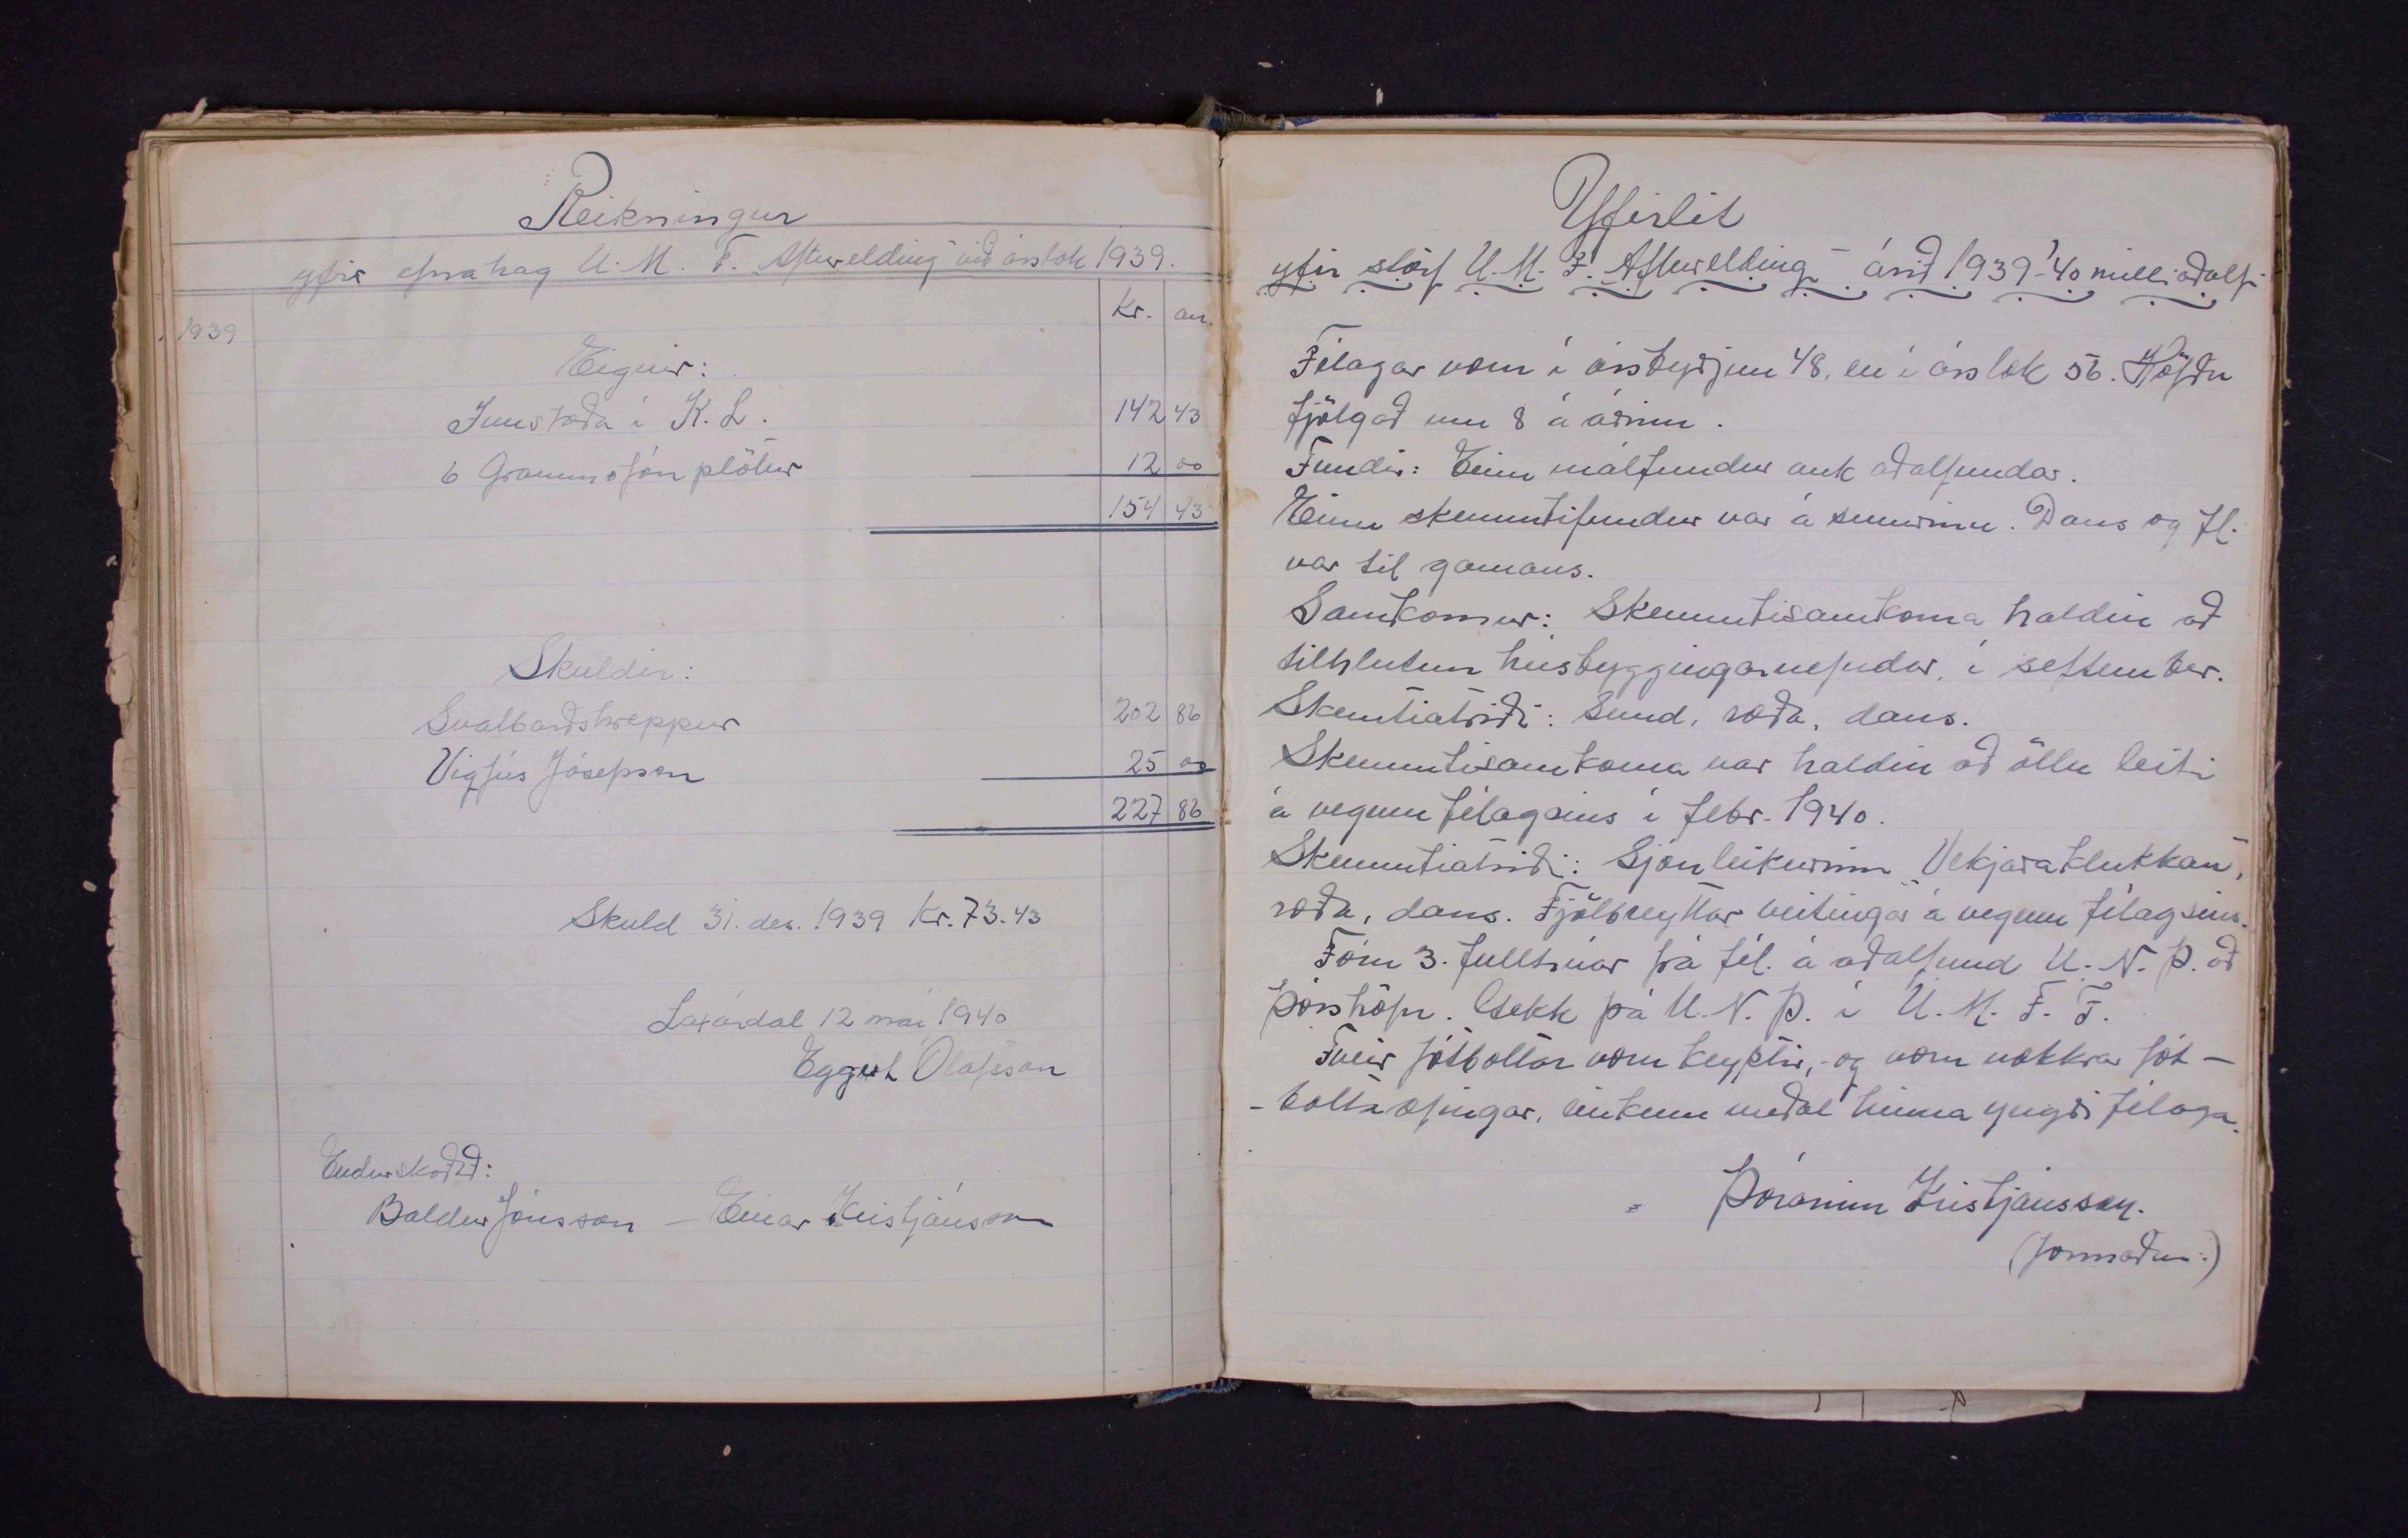 Reikningur
yfir efnahag U. M. F. "Afturelding" við árslok 1939.
Kr. au.
1939
Eignir:
Innstæða í K. L. 142 43
6 Grammofón plötur 12 00
154 43
Skuldir:
Svalbarðshreppur 202 86
Vigfús Jósepsson 25 00
227 86
Skuld 31. des. 1939 Kr. 73.43
Laxárdal 12 maí 1940
Eggert Ólafsson
Endurskoðað:
Baldur Jónsson – Einar Kristjánsson
Yfirlit
yfir störf U. M. F. "Afturelding" árið 1939-'40 milli aðalf.
Félagar voru í ársbyrjun 48, en í árslok 56. Höfðu
fjölgað um 8 á árinu.
Fundir: Einn málfundur auk aðalfundar.
Einn skemmtifundur var á sumrinu. Dans og fl.
var til gamans.
Samkomur: Skemmtisamkoma haldin að
tilhlutun húsbyggingarnefndar, í september.
Skemtiatriði: Sund, ræða, dans.
Skemmtisamkoma var haldin að öllu leiti
á vegum félagsins í febr. 1940.
Skemmtiatriði: Sjónleikurinn "Vekjaraklukkan",
ræða, dans. Fjölbreyttar veitingar á vegum félagsins.
Fóru 3. fulltrúar frá fél. á aðalfund U. N. Þ. að
Þórshöfn. Gekk þá U. N. Þ. í U. M. F. Í.
Tveir fótboltar voru keyptir, - og voru nokkrar fót-
-boltaæfingar, einkum meðal hinna yngri félaga.
Þórarinn Kristjánsson.
(formaður.)